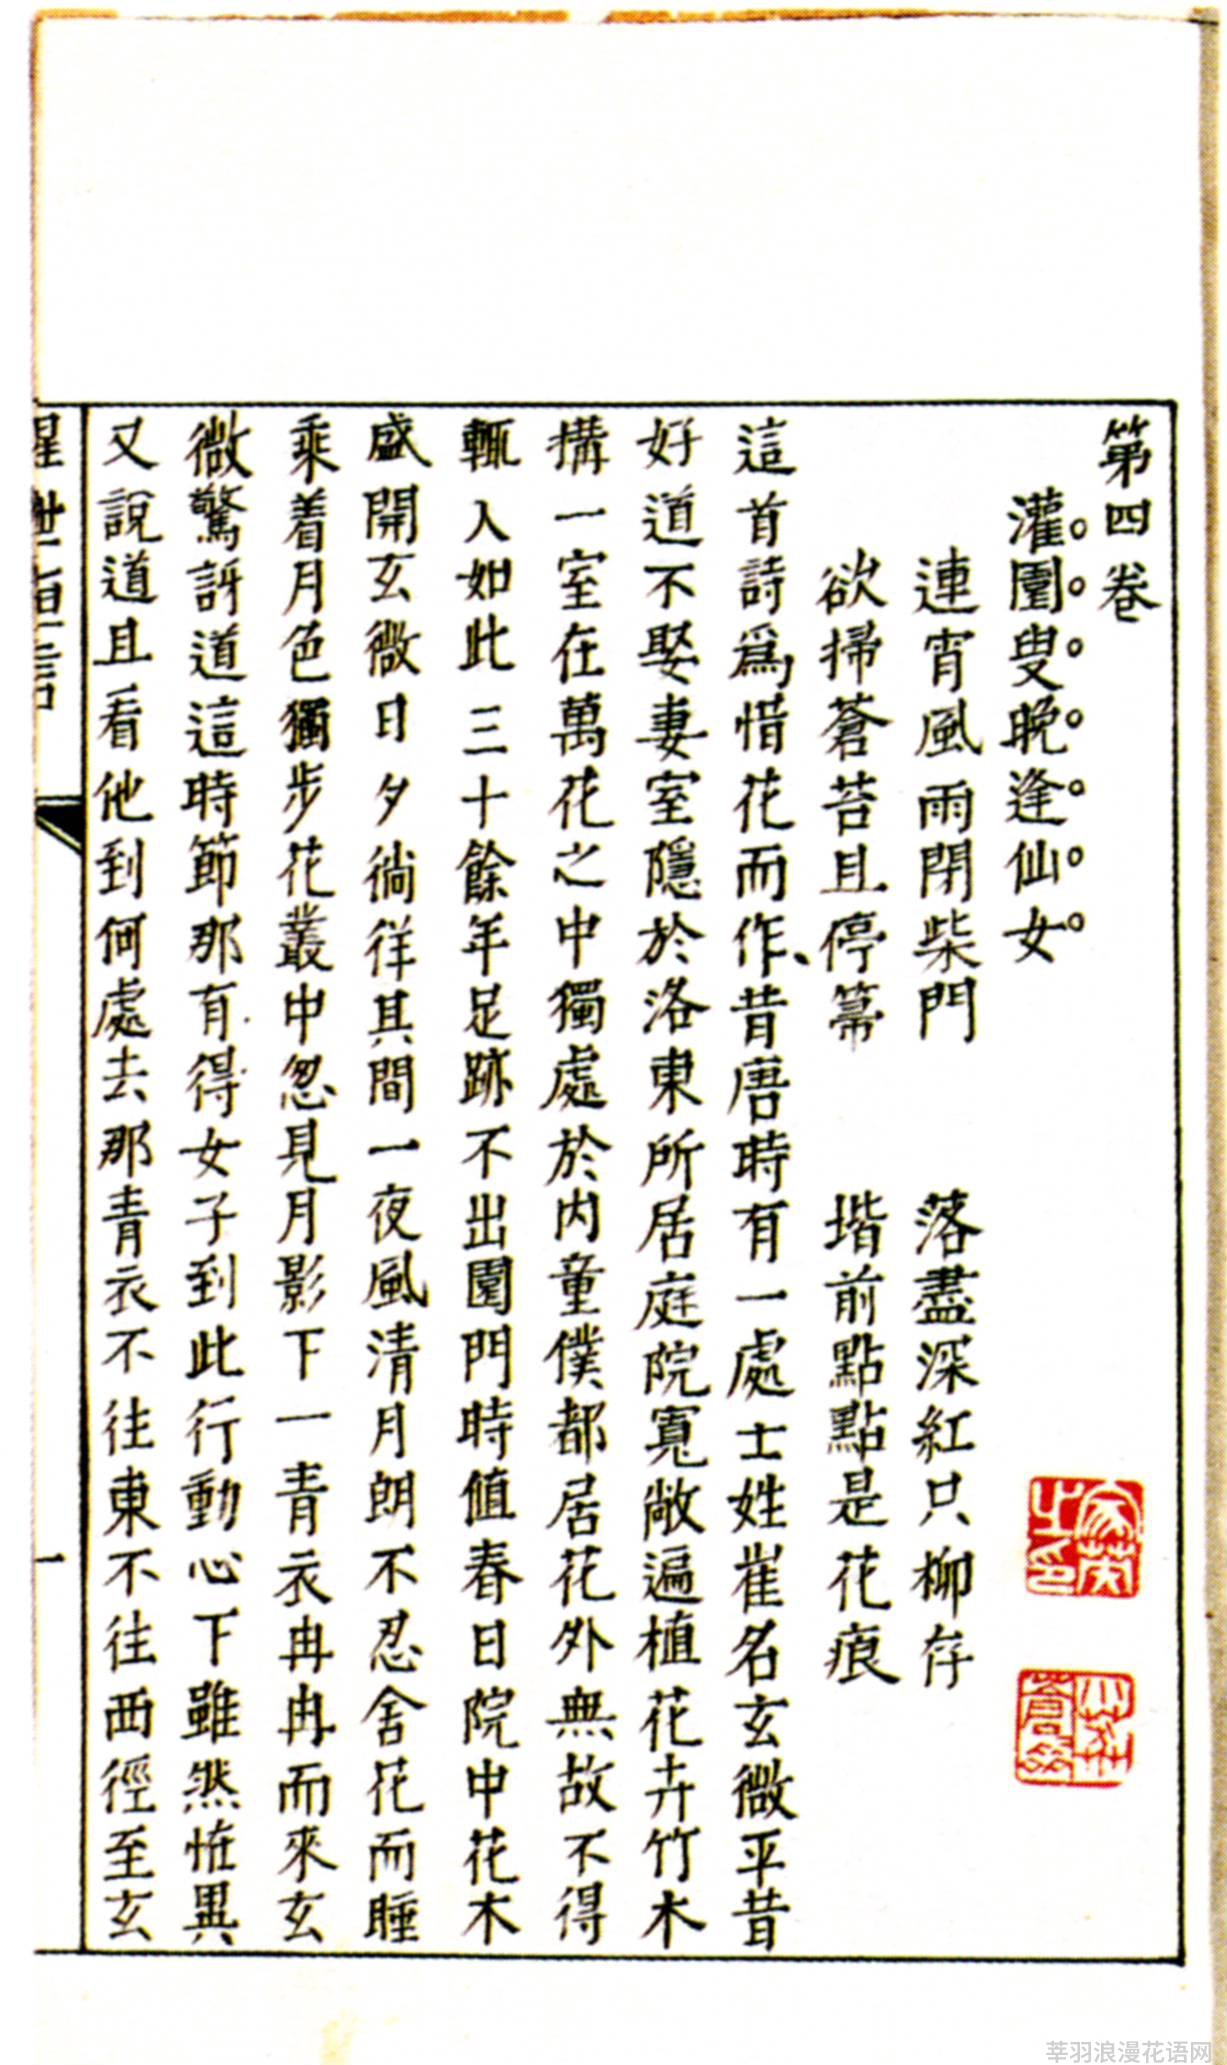 第四卷
灌園叟晚逢仙女
連宵風雨閉柴門　落盡深紅只柳存
欲掃蒼苔且停箒　堦前點點是花痕
這首詩爲惜花而作、昔唐時有一處士姓崔名玄微平昔
好道不娶妻室隱於洛東所居庭院寬敞遍植花卉竹木
搆一室在萬花之中獨處於內童僕都居花外無故不得
輒入如此三十餘年足跡不出園門時值春日院中花木
盛開玄微日夕徜徉其間一夜風清月朗不忍舍花而睡
乘着月色獨步花叢中忽見月影下一青衣冉冉而來玄
微驚訝道這時節那有得女子到此行動心下雖然恠異
又說道且看他到何處去那青衣不往東不往西徑至玄
醒世恒言
一
莘羽浪漫花语网